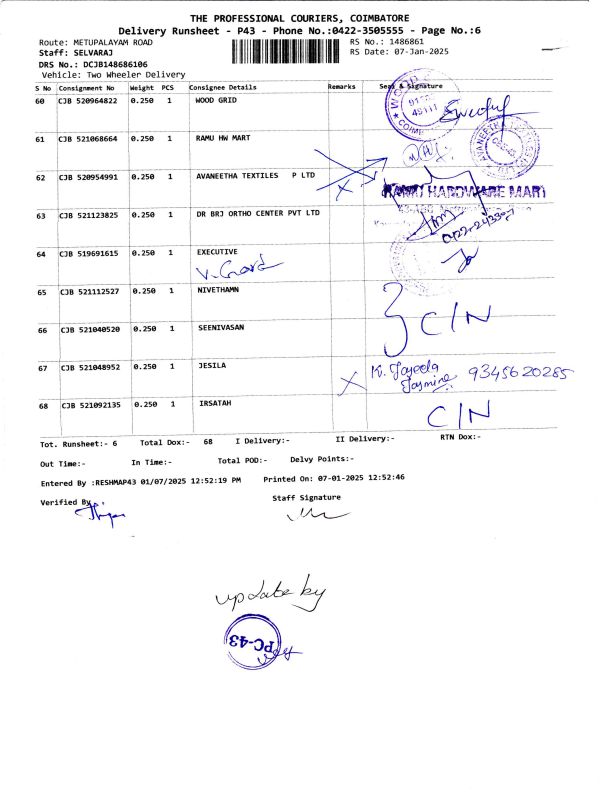 THE PROFESSIONAL COURIERS, COIMBATORE
Delivery Runsheet - P43 - Phone No.:0422-3505555 - Page No.:6
Route: METUPALAYAM ROAD RS No.: 1486861
Staff: SELVARAJ RS Date: 07-Jan-2025
DRS No.: DCJB148686106
Vehicle: Two Wheeler Delivery
S No Consignment No Weight PCS Consignee Details Remarks Seal & Signature
60 CJB 520964822 0.250 1 WOOD GRID
61 CJB 521068664 0.250 1 RAMU HW MART
62 CJB 520954991 0.250 1 AVANEETHA TEXTILES P LTD
RAMU HARDWARE MART
63 CJB 521123825 0.250 1 DR BRJ ORTHO CENTER PVT LTD
64 CJB 519691615 0.250 1 EXECUTIVE
65 CJB 521112527 0.250 1 NIVETHAMN
C/N
66 CJB 521040520 0.250 1 SEENIVASAN
67 CJB 521048952 0.250 1 JESILA
K. Jayeela Jasmine 9345620285
68 CJB 521092135 0.250 1 IRSATAH C/N
Tot. Runsheet:- 6 Total Dox:- 68 I Delivery:- II Delivery:- RTN Dox:-
Out Time:- In Time:- Total POD:- Delvy Points:-
Entered By :RESHMAP43 01/07/2025 12:52:19 PM Printed On: 07-01-2025 12:52:46
Verified By Staff Signature
update by
PC-43